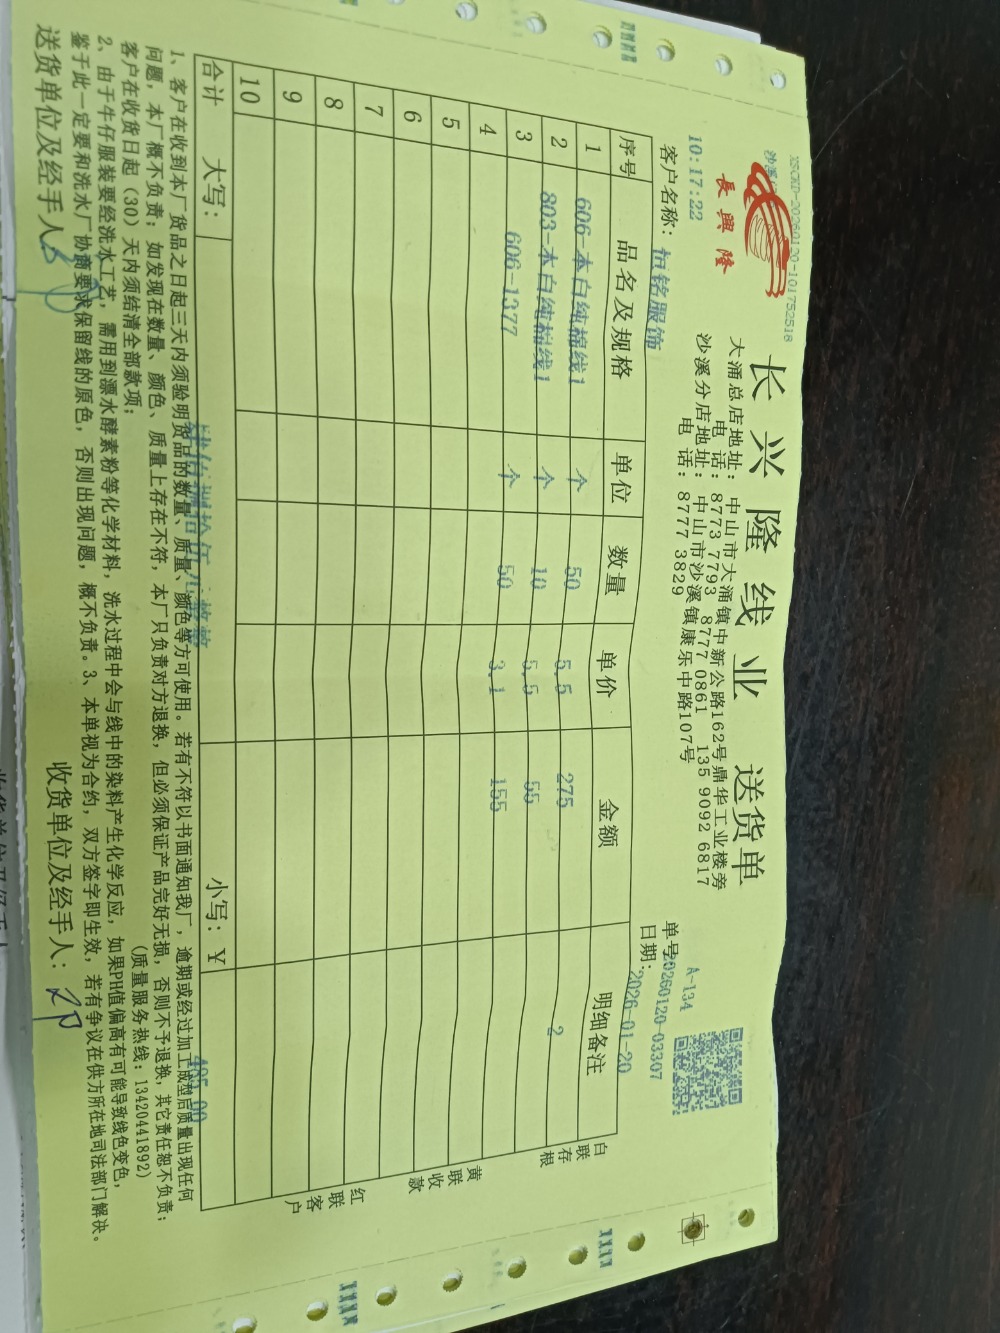 XSCKD-20260120-101752518
長興隆
长兴隆线业 送货单
大涌总店地址:中山市大涌镇中新公路162号鼎华工业楼旁
电 话:8773 7793 8777 0861 135 9092 6817
沙溪分店地址:中山市沙溪镇康乐中路107号
电 话:8777 3829
10:17:22
A-134
单号:20260120-03307
客户名称:恒铭服饰
日期:2026-01-20
序号 品名及规格 单位 数量 单价 金额 明细备注
1 606-本白纯棉线1 个 50 5.5 275 2
2 803-本白纯棉线1 个 10 5.5 55
3 606-1377 个 50 3.1 155
4
5
6
7
8
9
10
合计 大写: 小写:¥ 485.00
白联存根
黄联收款
红联客户
1、客户在收到本厂货品之日起三天内须验明货品的数量、质量、颜色等方可使用。若有不符以书面通知我厂,逾期或经过加工成型后质量出现任何
问题,本厂概不负责;如发现在数量、颜色、质量上存在不符,本厂只负责对方退换,但必须保证产品完好无损,否则不予退换,其它责任恕不负责;
客户在收货日起(30)天内须结清全部款项; (质量服务热线:13420441892)
2、由于牛仔服装要经洗水工艺,需用到漂水酵素粉等化学材料,洗水过程中会与线中的染料产生化学反应,如果PH值偏高有可能导致线色变色,
鉴于此一定要和洗水厂协商要求保留线的原色,否则出现问题,概不负责。3、本单视为合约,双方签字即生效,若有争议在供方所在地司法部门解决。
送货单位及经手人: 收货单位及经手人: